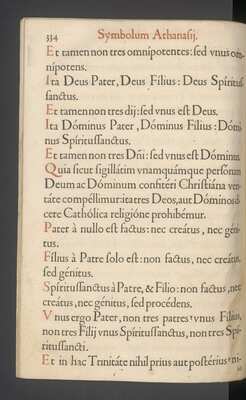 334 Symbolum Athanasij.
Et tamen non tres omnipotentes: sed vnus om-
nipotens.
Ita Deus Pater, Deus Filius: Deus Spíritus
sanctus.
Et tamen non tres dij: sed vnus est Deus.
Ita Dóminus Pater, Dóminus Filius: Dómi
nus Spíritussanctus.
Et tamen non tres Dñi: sed vnus est Dóminus
Quia sicut sigillátim vnamquámque persónam
Deum ac Dóminum confitéri Christiána ve-
ritáte compéllimur: ita tres Deos, aut Dóminos di
cere Cathólica religióne prohibémur.
Pater à nullo est factus: nec creátus, nec géni
tus.
Fílius à Patre solo est: non factus, nec creátus,
sed génitus.
Spíritussanctus à Patre, & Filio: non factus, nec
creátus, nec génitus, sed procédens.
Vnus ergo Pater, non tres patres: vnus Filius,
non tres Filij vnus Spíritussanctus, non tres Spí-
ritussancti.
Et in hac Trinitáte nihil prius aut postérius: ni-